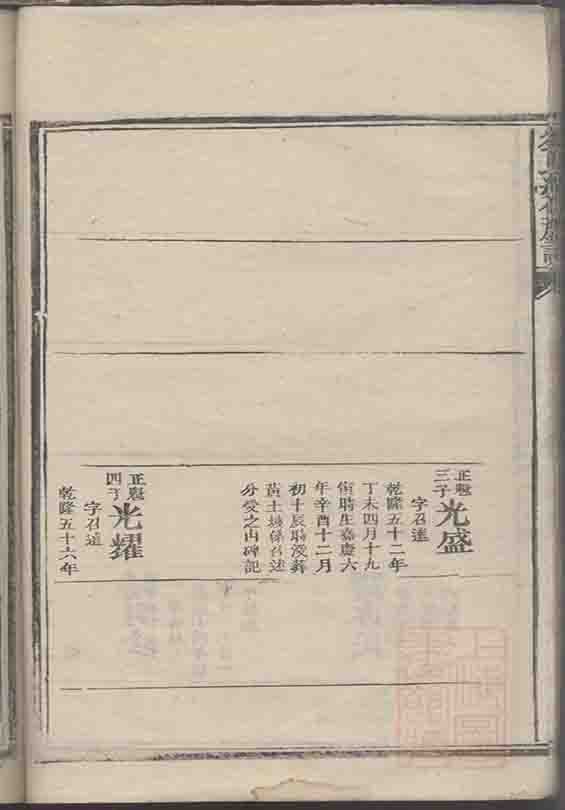 正魁
三子
光盛
字召進
乾隆五十二年
丁未四月十九
寅時生嘉慶六
年辛酉十二月
初十辰時歿葬
黃土坳係召述
分受之山碑記
正魁
四子
光耀
字召進
乾隆五十六年